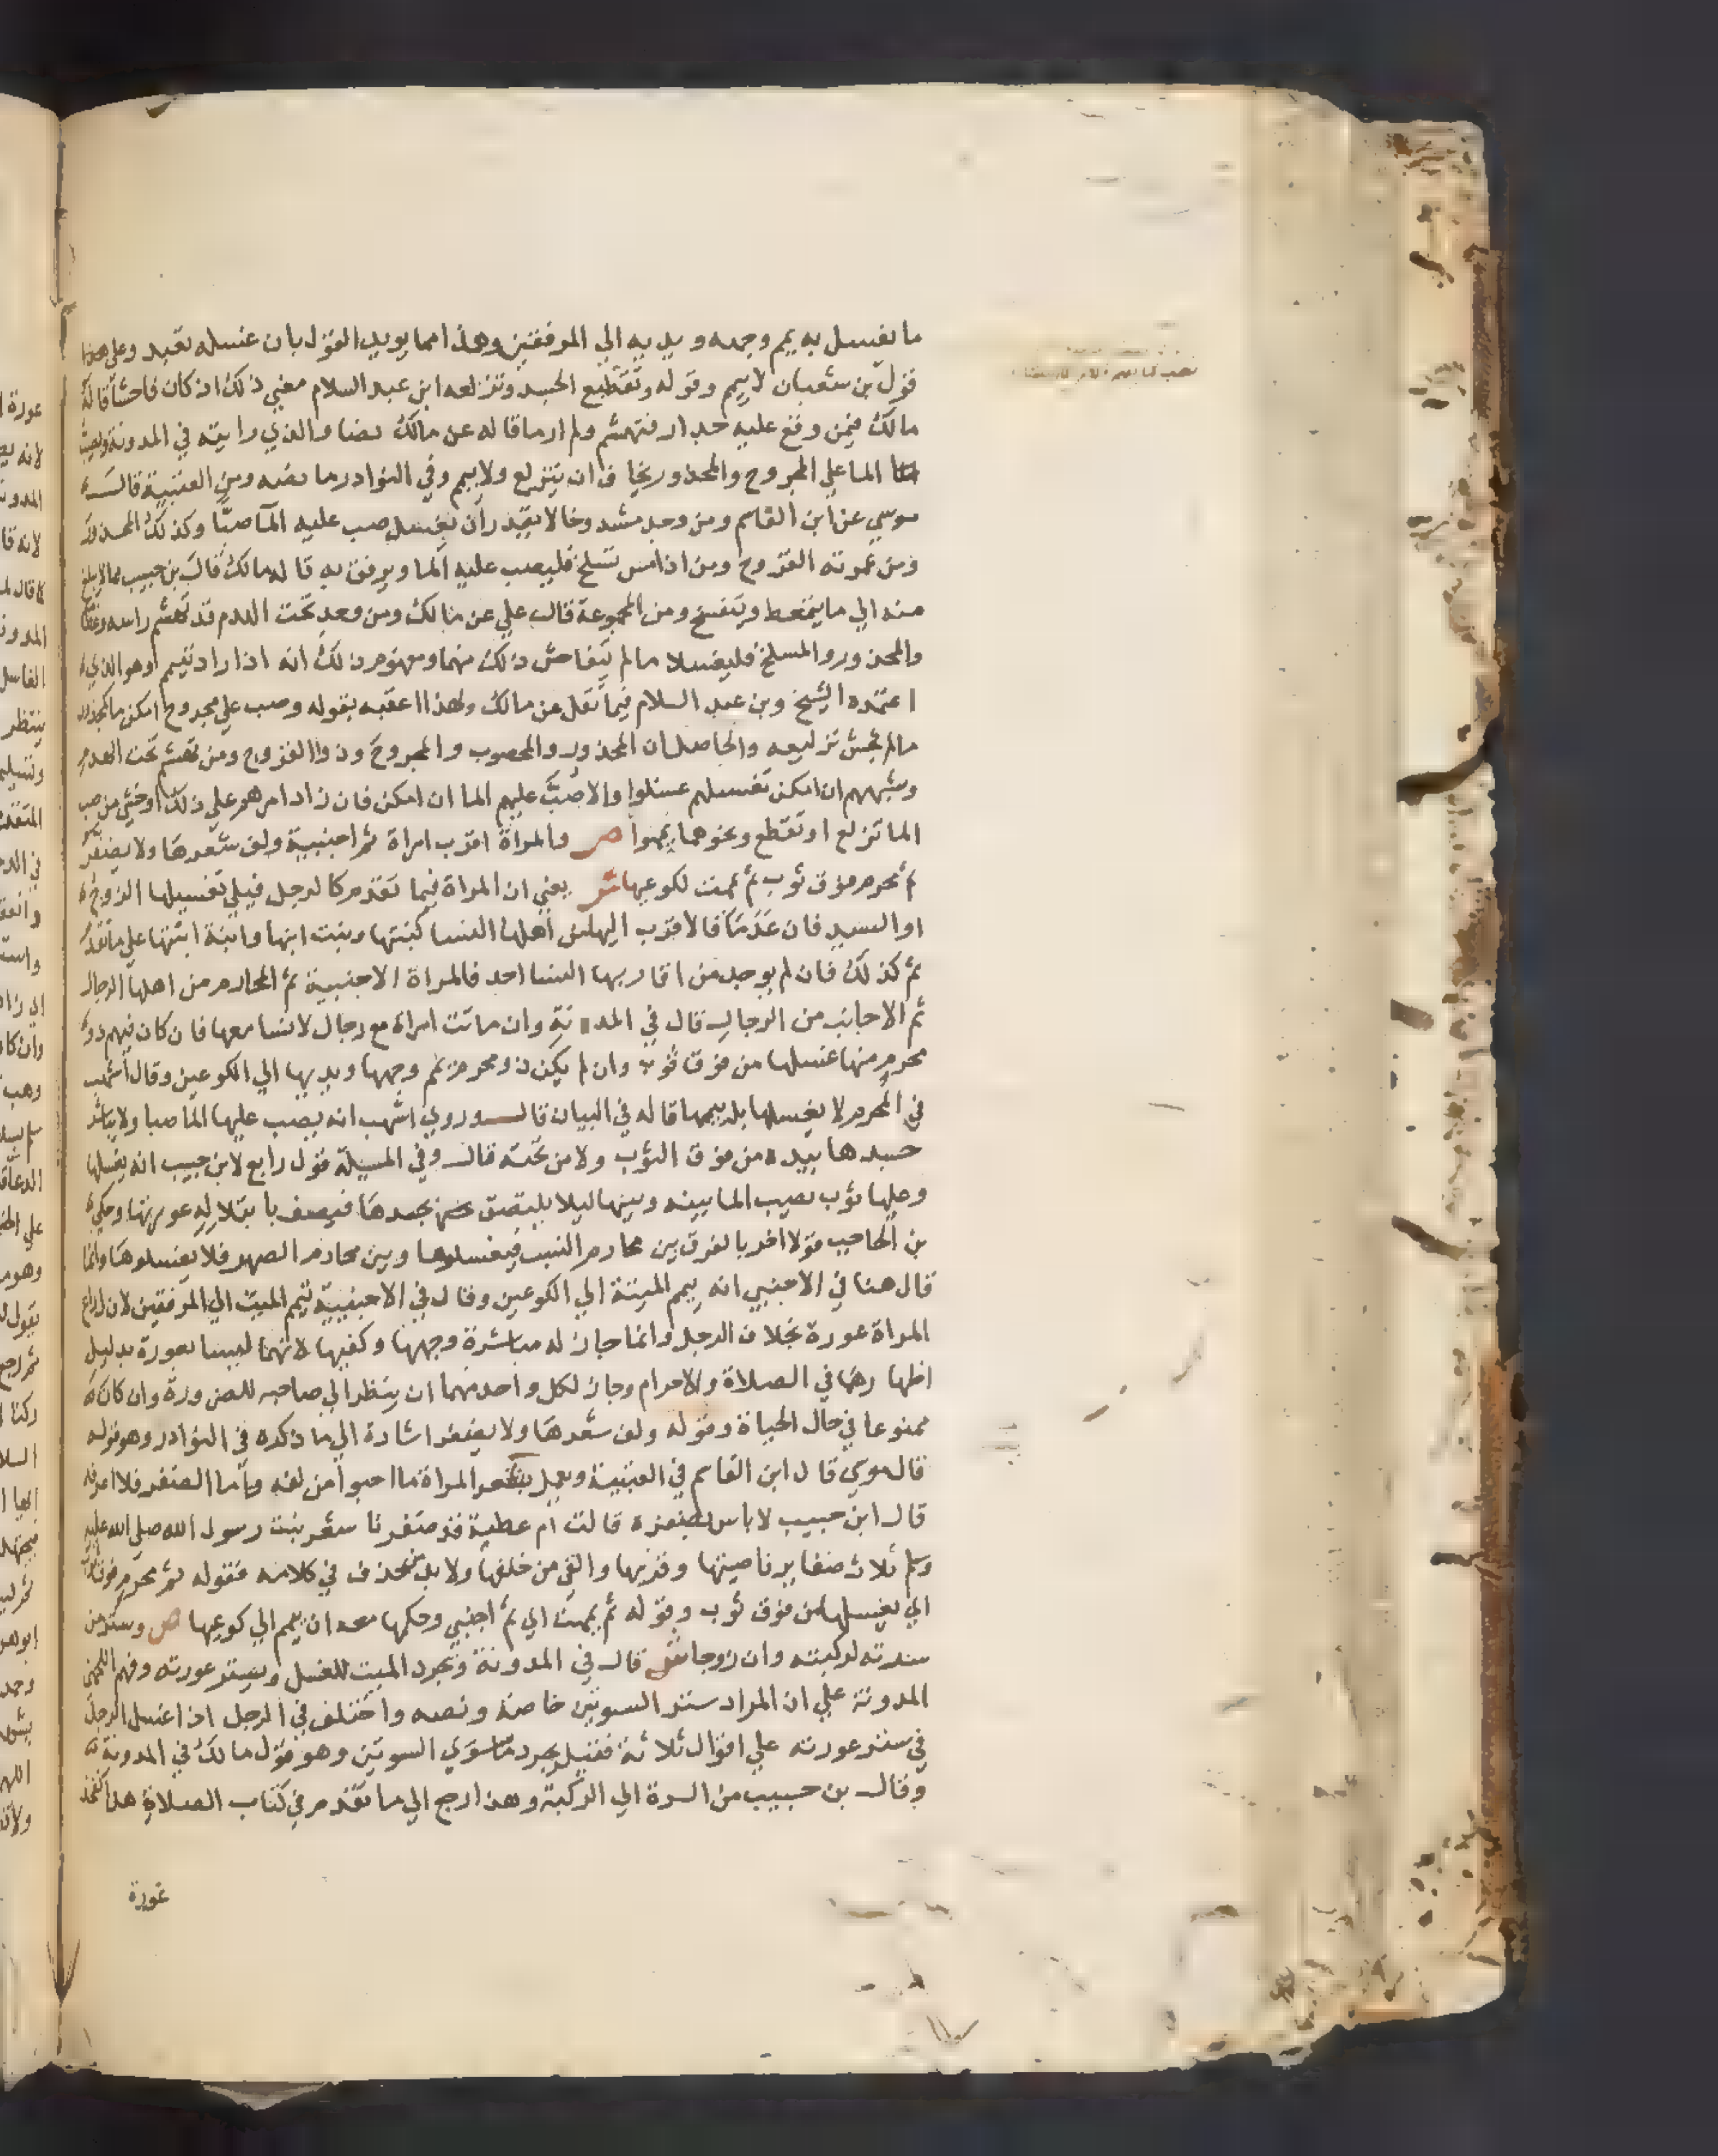 ما يغسل به يمم وجهه ويديه الي المرفقين وهذا مما يويد القول بان غسله تعبد وعلي هذا
قول بن شعبان لا ييمم وقوله وتقطيع الجسد وتزلعه ابن عبد السلام معني ذلك اذ كان فاحشا قاله
مالك فيمن وقع عليه جدار فتهشم ولم ار ما قاله عن مالك نصا والذي رايته في المدونة ويصب
الما علي المجروح والمجدور يخاف ان يتزلع ولا ييمم وفي النوادر ما نصه ومن العتبية قال
موسي عن ابن القاسم ومن وجد مشدوخا لا يقدر ان يغسل صب عليه الما صبا وكذلك المجدور
ومن غمرته القروح ومن اذا مس تسلخ فليصب عليه الما ويرفق به قاله مالك قال بن حبيب مما لا يبلغ
منه الي ما يتمعط ويتفسخ ومن المجموعة قال علي عن مالك ومن وجد تحت الهدم قد تهشم راسه وعظامه
والمجدور والمسلخ فليغسلا ما لم يتفاحش ذلك منهما ومفهوم ذلك انه اذا زاد تيمم وهو الذي
اعتمده الشيخ وبن عبد السلام فيما نقل عن مالك ولهذا اعقبه بقوله وصب علي مجروح امكن ما كمجدور
ما لم يخش تزليعه والحاصل ان المجدور والمحصوب والمجروح وذوا القروح ومن تهشم تحت الهدم
وشبههم ان امكن تغسيلهم غسلوا والا صب عليهم الما ان امكن فان زاد امرهم علي ذلك او خشي من صب
الما تزلع او تقطع ونحوهما يمموا ص والمراة اقرب امراة ثم اجنبية ولف شعرها ولا يضفر
ثم محرم فوق ثوب ثم يممت لكوعيها ش يعني ان المراة فيما تقدم كالرجل فيلي تغسيلها الزوج
او السيد فان عدما فالاقرب اليها من اهلها النسا كبنتها وبنت ابنها وابنة ابنتها علي ما تقدم
ثم كذلك فان لم يوجد من اقاربها النسا احد فالمراة الاجنبية ثم المحارم من اهلها الرجال
ثم الاجانب من الرجال قال في المدونة وان ماتت امراة مع رجال لا نسا معها فان كان فيهم ذو
محرم منها غسلها من فوق ثوب وان لم يكن ذو محرم يمم وجهها ويديها الي الكوعين وقال اشهب
في المحرم لا يغسلها بل ييممها قاله في البيان قال وروي اشهب انه يصب عليها الما صبا ولا يباشر
جسدها بيده من فوق الثوب ولا من تحته قال وفي المسيلة قول رابع لابن حبيب انه يغسلها
وعليها ثوب يصيب الما بينه وبينها ليلا يلتصق بجسدها فيصف بابتلاله عورتها وحكي
بن الحاجب قولا اخر بالفرق بين محارم النسب فيغسلوها وبين محارم الصهر فلا يغسلوها وانما
قال هنا في الاجنبي انه ييمم الميتة الي الكوعين وقال في الاجنبية تيمم الميت الي المرفقين لان ذراع
المراة عورة بخلاف الرجل وانما جاز له مباشرة وجهها وكفيها لانهما ليسا بعورة بدليل
اظهارهما في الصلاة والاحرام وجاز لكل واحد منهما ان ينظر الي صاحبه للضرورة وان كان
ممنوعا في حال الحياة وقوله ولف شعرها ولا يضفر اشارة الي ما ذكره في النوادر وهو قوله
قال موسي قال ابن القاسم في العتبية ويعمل بشعر المراة ما احبوا من لفه واما الضفر فلا اعرفه
قال ابن حبيب لا باس بضفره قالت ام عطية قد ضفرنا شعر بنت رسول الله صلي الله عليه
وسلم ثلاث ضفاير ناصيتها وقرنيها والقي من خلفها ولا بد من حذف في كلامه فقوله ثم محرم فوق ثوب
اي يغسلها من فوق ثوب وقوله ثم يممت اي ثم اجنبي وحكمها معه ان ييمم الي كوعيها ص وستر من
سرته لركبته وان زوجا ش قال في المدونة ويجرد الميت للغسل ويستر عورته وفهم اللخمي
المدونة علي ان المراد ستر السوتين خاصة ونصه واختلف في الرجل اذا غسل الرجل
في ستر عورته علي اقوال ثلاثة فقيل يجرد ما سوي السوتين وهو قول مالك في المدونة
وقال بن حبيب من السرة الي الركبة وهذا راجع الي ما تقدم في كتاب الصلاة هل الفخذ
عورة